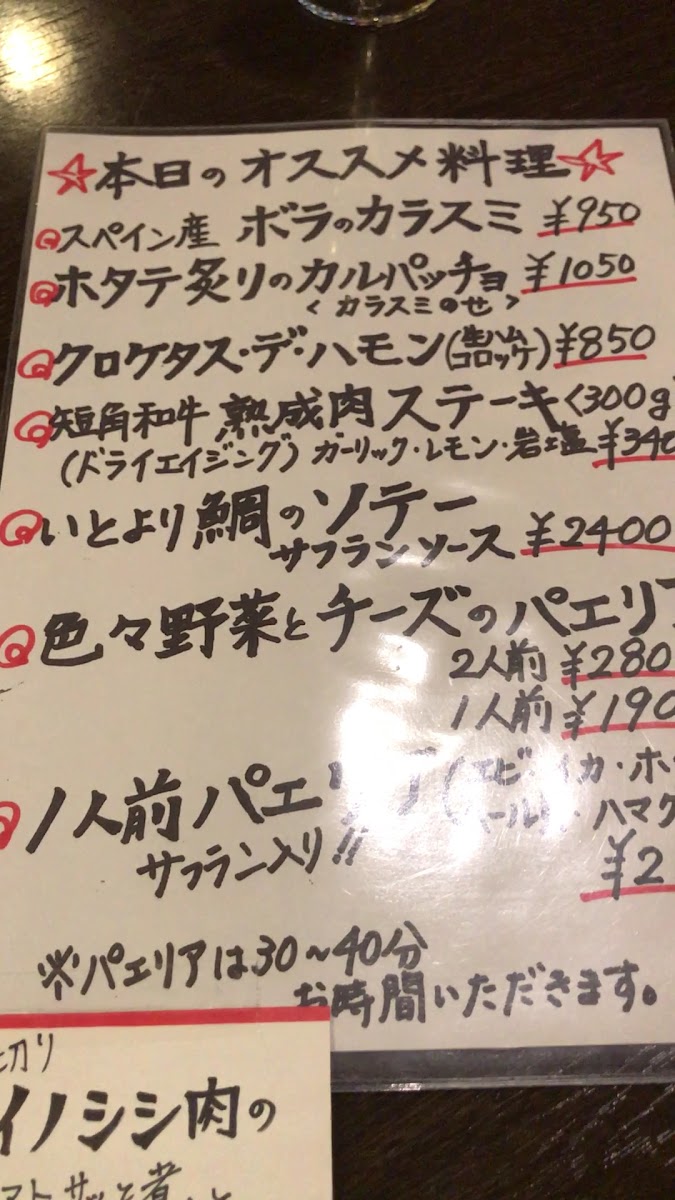 ☆本日のオススメ料理☆
スペイン産 ボラのカラスミ ¥950
ホタテ炙りのカルパッチョ ¥1050
<カラスミのせ>
クロケタス・デ・ハモン(生ハムコロッケ) ¥850
短角和牛 熟成肉ステーキ<300g
(ドライエイジング) ガーリック・レモン・岩塩 ¥340
いとより鯛のソテー
サフランソース ¥2400
色々野菜とチーズのパエリア
2人前 ¥280
1人前 ¥190
1人前パエリア(エビ・イカ・ホ
ハマグ
サフラン入り!! ¥2
※パエリアは30~40分
お時間いただきます。
切り
イノシシ肉の